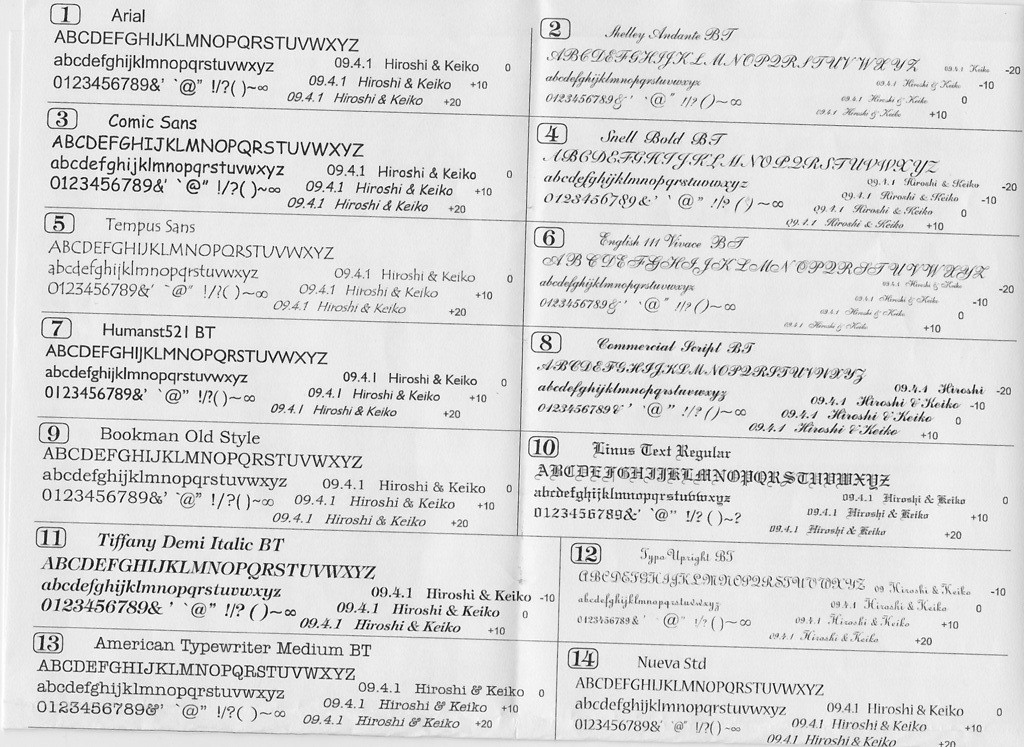 1 Arial
ABCDEFGHIJKLMNOPQRSTUVWXYZ
abcdefghijklmnopqrstuvwxyz 09.4.1 Hiroshi & Keiko 0
0123456789&' `@" !/?( )~∞ 09.4.1 Hiroshi & Keiko +10
09.4.1 Hiroshi & Keiko +20
2 Shelley Andante BT
ABCDEFGHIJKLMNOPQRSTUVWXYZ 09.4.1 Keiko -20
abcdefghijklmnopqrstuvwxyz 09.4.1 Hiroshi & Keiko -10
0123456789&' `@" !/?( )~∞ 09.4.1 Hiroshi & Keiko 0
09.4.1 Hiroshi & Keiko +10
3 Comic Sans
ABCDEFGHIJKLMNOPQRSTUVWXYZ
abcdefghijklmnopqrstuvwxyz 09.4.1 Hiroshi & Keiko 0
0123456789&' `@" !/?( )~∞ 09.4.1 Hiroshi & Keiko +10
09.4.1 Hiroshi & Keiko +20
4 Snell Bold BT
ABCDEFGHIJKLMNOPQRSTUVWXYZ
abcdefghijklmnopqrstuvwxyz 09.4.1 Hiroshi & Keiko -20
0123456789&' `@" !/?( )~∞ 09.4.1 Hiroshi & Keiko -10
09.4.1 Hiroshi & Keiko 0
09.4.1 Hiroshi & Keiko +10
5 Tempus Sans
ABCDEFGHIJKLMNOPQRSTUVWXYZ
abcdefghijklmnopqrstuvwxyz 09.4.1 Hiroshi & Keiko 0
0123456789&' `@" !/?( )~∞ 09.4.1 Hiroshi & Keiko +10
09.4.1 Hiroshi & Keiko +20
6 English 111 Vivace BT
ABCDEFGHIJKLMNOPQRSTUVWXYZ
abcdefghijklmnopqrstuvwxyz 09.4.1 Hiroshi & Keiko -20
0123456789&' `@" !/?( )~∞ 09.4.1 Hiroshi & Keiko -10
09.4.1 Hiroshi & Keiko 0
09.4.1 Hiroshi & Keiko +10
7 Humanst521 BT
ABCDEFGHIJKLMNOPQRSTUVWXYZ
abcdefghijklmnopqrstuvwxyz 09.4.1 Hiroshi & Keiko 0
0123456789&' `@" !/?( )~∞ 09.4.1 Hiroshi & Keiko +10
09.4.1 Hiroshi & Keiko +20
8 Commercial Script BT
ABCDEFGHIJKLMNOPQRSTUVWXYZ
abcdefghijklmnopqrstuvwxyz 09.4.1 Hiroshi -20
0123456789&' `@" !/?( )~∞ 09.4.1 Hiroshi & Keiko -10
09.4.1 Hiroshi & Keiko 0
09.4.1 Hiroshi & Keiko +10
9 Bookman Old Style
ABCDEFGHIJKLMNOPQRSTUVWXYZ
abcdefghijklmnopqrstuvwxyz 09.4.1 Hiroshi & Keiko 0
0123456789&' `@" !/?( )~∞ 09.4.1 Hiroshi & Keiko +10
09.4.1 Hiroshi & Keiko +20
10 Linus Text Regular
ABCDEFGHIJKLMNOPQRSTUVWXYZ
abcdefghijklmnopqrstuvwxyz 09.4.1 Hiroshi & Keiko 0
0123456789&' `@" !/?( )~? 09.4.1 Hiroshi & Keiko +10
09.4.1 Hiroshi & Keiko +20
11 Tiffany Demi Italic BT
ABCDEFGHIJKLMNOPQRSTUVWXYZ
abcdefghijklmnopqrstuvwxyz 09.4.1 Hiroshi & Keiko -10
0123456789& ' `@" !/?( )~∞ 09.4.1 Hiroshi & Keiko 0
09.4.1 Hiroshi & Keiko +10
12 Typo Upright BT
ABCDEFGHIJKLMNOPQRSTUVWXYZ 09 Hiroshi & Keiko -10
abcdefghijklmnopqrstuvwxyz 09.4.1 Hiroshi & Keiko 0
0123456789&' `@" !/?( )~∞ 09.4.1 Hiroshi & Keiko +10
09.4.1 Hiroshi & Keiko +20
13 American Typewriter Medium BT
ABCDEFGHIJKLMNOPQRSTUVWXYZ
abcdefghijklmnopqrstuvwxyz 09.4.1 Hiroshi & Keiko 0
0123456789&' `@" !/?( )~∞ 09.4.1 Hiroshi & Keiko +10
09.4.1 Hiroshi & Keiko +20
14 Nueva Std
ABCDEFGHIJKLMNOPQRSTUVWXYZ
abcdefghijklmnopqrstuvwxyz 09.4.1 Hiroshi & Keiko 0
0123456789&' `@" !/?( )~∞ 09.4.1 Hiroshi & Keiko +10
09.4.1 Hiroshi & Keiko +20